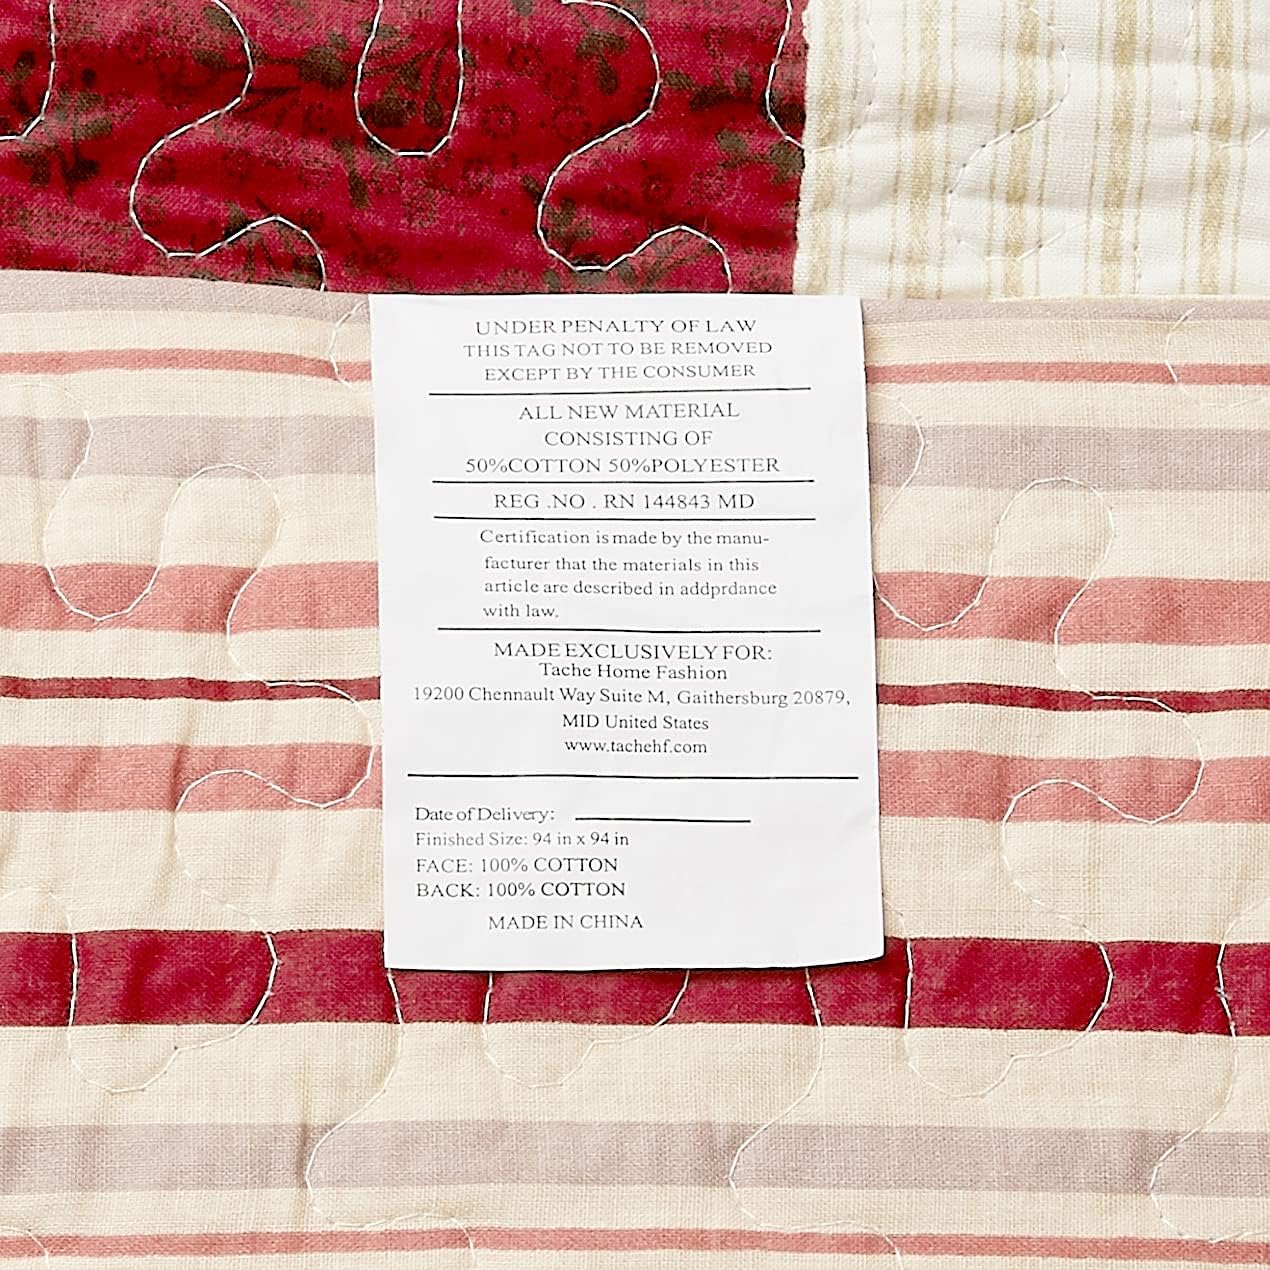 UNDER PENALTY OF LAW
THIS TAG NOT TO BE REMOVED
EXCEPT BY THE CONSUMER
ALL NEW MATERIAL
CONSISTING OF
50%COTTON 50%POLYESTER
REG .NO . RN 144843 MD
Certification is made by the manu-
facturer that the materials in this
article are described in addprdance
with law.
MADE EXCLUSIVELY FOR:
Tache Home Fashion
19200 Chennault Way Suite M, Gaithersburg 20879,
MID United States
www.tachehf.com
Date of Delivery:
Finished Size: 94 in x 94 in
FACE: 100% COTTON
BACK: 100% COTTON
MADE IN CHINA